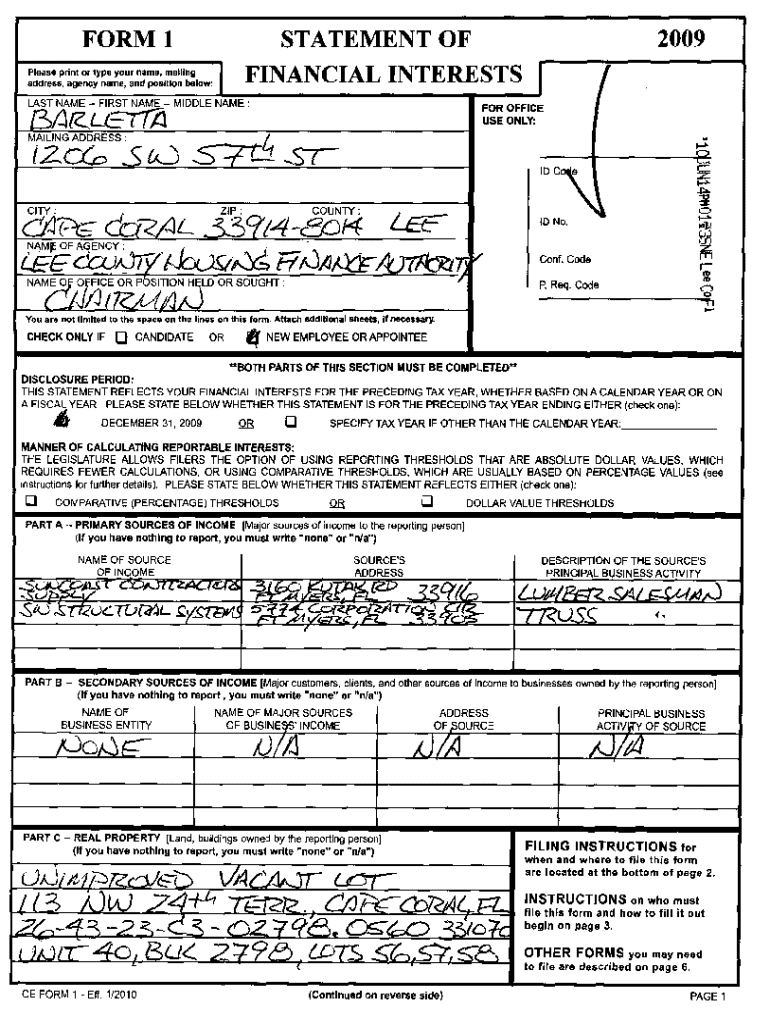 FORM 1 STATEMENT OF 2009
FINANCIAL INTERESTS
Please print or type your name, mailing
address, agency name, and position below:
LAST NAME – FIRST NAME – MIDDLE NAME :
BARLETTA
MAILING ADDRESS :
1206 SW 57th ST
CITY : ZIP : COUNTY :
CAPE CORAL 33914-8014 LEE
NAME OF AGENCY :
LEE COUNTY HOUSING FINANCE AUTHORITY
NAME OF OFFICE OR POSITION HELD OR SOUGHT :
CHAIRMAN
You are not limited to the space on the lines on this form. Attach additional sheets, if necessary.
CHECK ONLY IF CANDIDATE OR NEW EMPLOYEE OR APPOINTEE
FOR OFFICE
USE ONLY:
ID Code
ID No.
Conf. Code
P. Req. Code
**BOTH PARTS OF THIS SECTION MUST BE COMPLETED**
DISCLOSURE PERIOD:
THIS STATEMENT REFLECTS YOUR FINANCIAL INTERESTS FOR THE PRECEDING TAX YEAR, WHETHER BASED ON A CALENDAR YEAR OR ON
A FISCAL YEAR PLEASE STATE BELOW WHETHER THIS STATEMENT IS FOR THE PRECEDING TAX YEAR ENDING EITHER (check one):
DECEMBER 31, 2009 OR SPECIFY TAX YEAR IF OTHER THAN THE CALENDAR YEAR:
MANNER OF CALCULATING REPORTABLE INTERESTS:
THE LEGISLATURE ALLOWS FILERS THE OPTION OF USING REPORTING THRESHOLDS THAT ARE ABSOLUTE DOLLAR VALUES, WHICH
REQUIRES FEWER CALCULATIONS, OR USING COMPARATIVE THRESHOLDS, WHICH ARE USUALLY BASED ON PERCENTAGE VALUES (see
instructions for further details). PLEASE STATE BELOW WHETHER THIS STATEMENT REFLECTS EITHER (check one):
COMPARATIVE (PERCENTAGE) THRESHOLDS OR DOLLAR VALUE THRESHOLDS
PART A -- PRIMARY SOURCES OF INCOME [Major sources of income to the reporting person]
(If you have nothing to report, you must write "none" or "n/a")
NAME OF SOURCE SOURCE'S DESCRIPTION OF THE SOURCE'S
OF INCOME ADDRESS PRINCIPAL BUSINESS ACTIVITY
SUNCOAST CONTRACTORS 3160 RD 33916 LUMBER SALESMAN
SUPPLY FT MYERS, FL
SW STRUCTURAL SYSTEMS 5774 CORPORATION CIR TRUSS "
FT MYERS, FL 33905
PART B – SECONDARY SOURCES OF INCOME [Major customers, clients, and other sources of income to businesses owned by the reporting person]
(If you have nothing to report , you must write "none" or "n/a")
NAME OF NAME OF MAJOR SOURCES ADDRESS PRINCIPAL BUSINESS
BUSINESS ENTITY OF BUSINESS' INCOME OF SOURCE ACTIVITY OF SOURCE
NONE N/A N/A N/A
PART C – REAL PROPERTY [Land, buildings owned by the reporting person]
(If you have nothing to report, you must write "none" or "n/a")
UNIMPROVED VACANT LOT
113 NW 24th TERR., CAPE CORAL, FL
26-43-23-C3-02798.0560
UNIT 40, BLK 2798, LOTS 56,57,58
FILING INSTRUCTIONS for
when and where to file this form
are located at the bottom of page 2.
INSTRUCTIONS on who must
file this form and how to fill it out
begin on page 3.
OTHER FORMS you may need
to file are described on page 6.
CE FORM 1 - Eff. 1/2010 (Continued on reverse side) PAGE 1